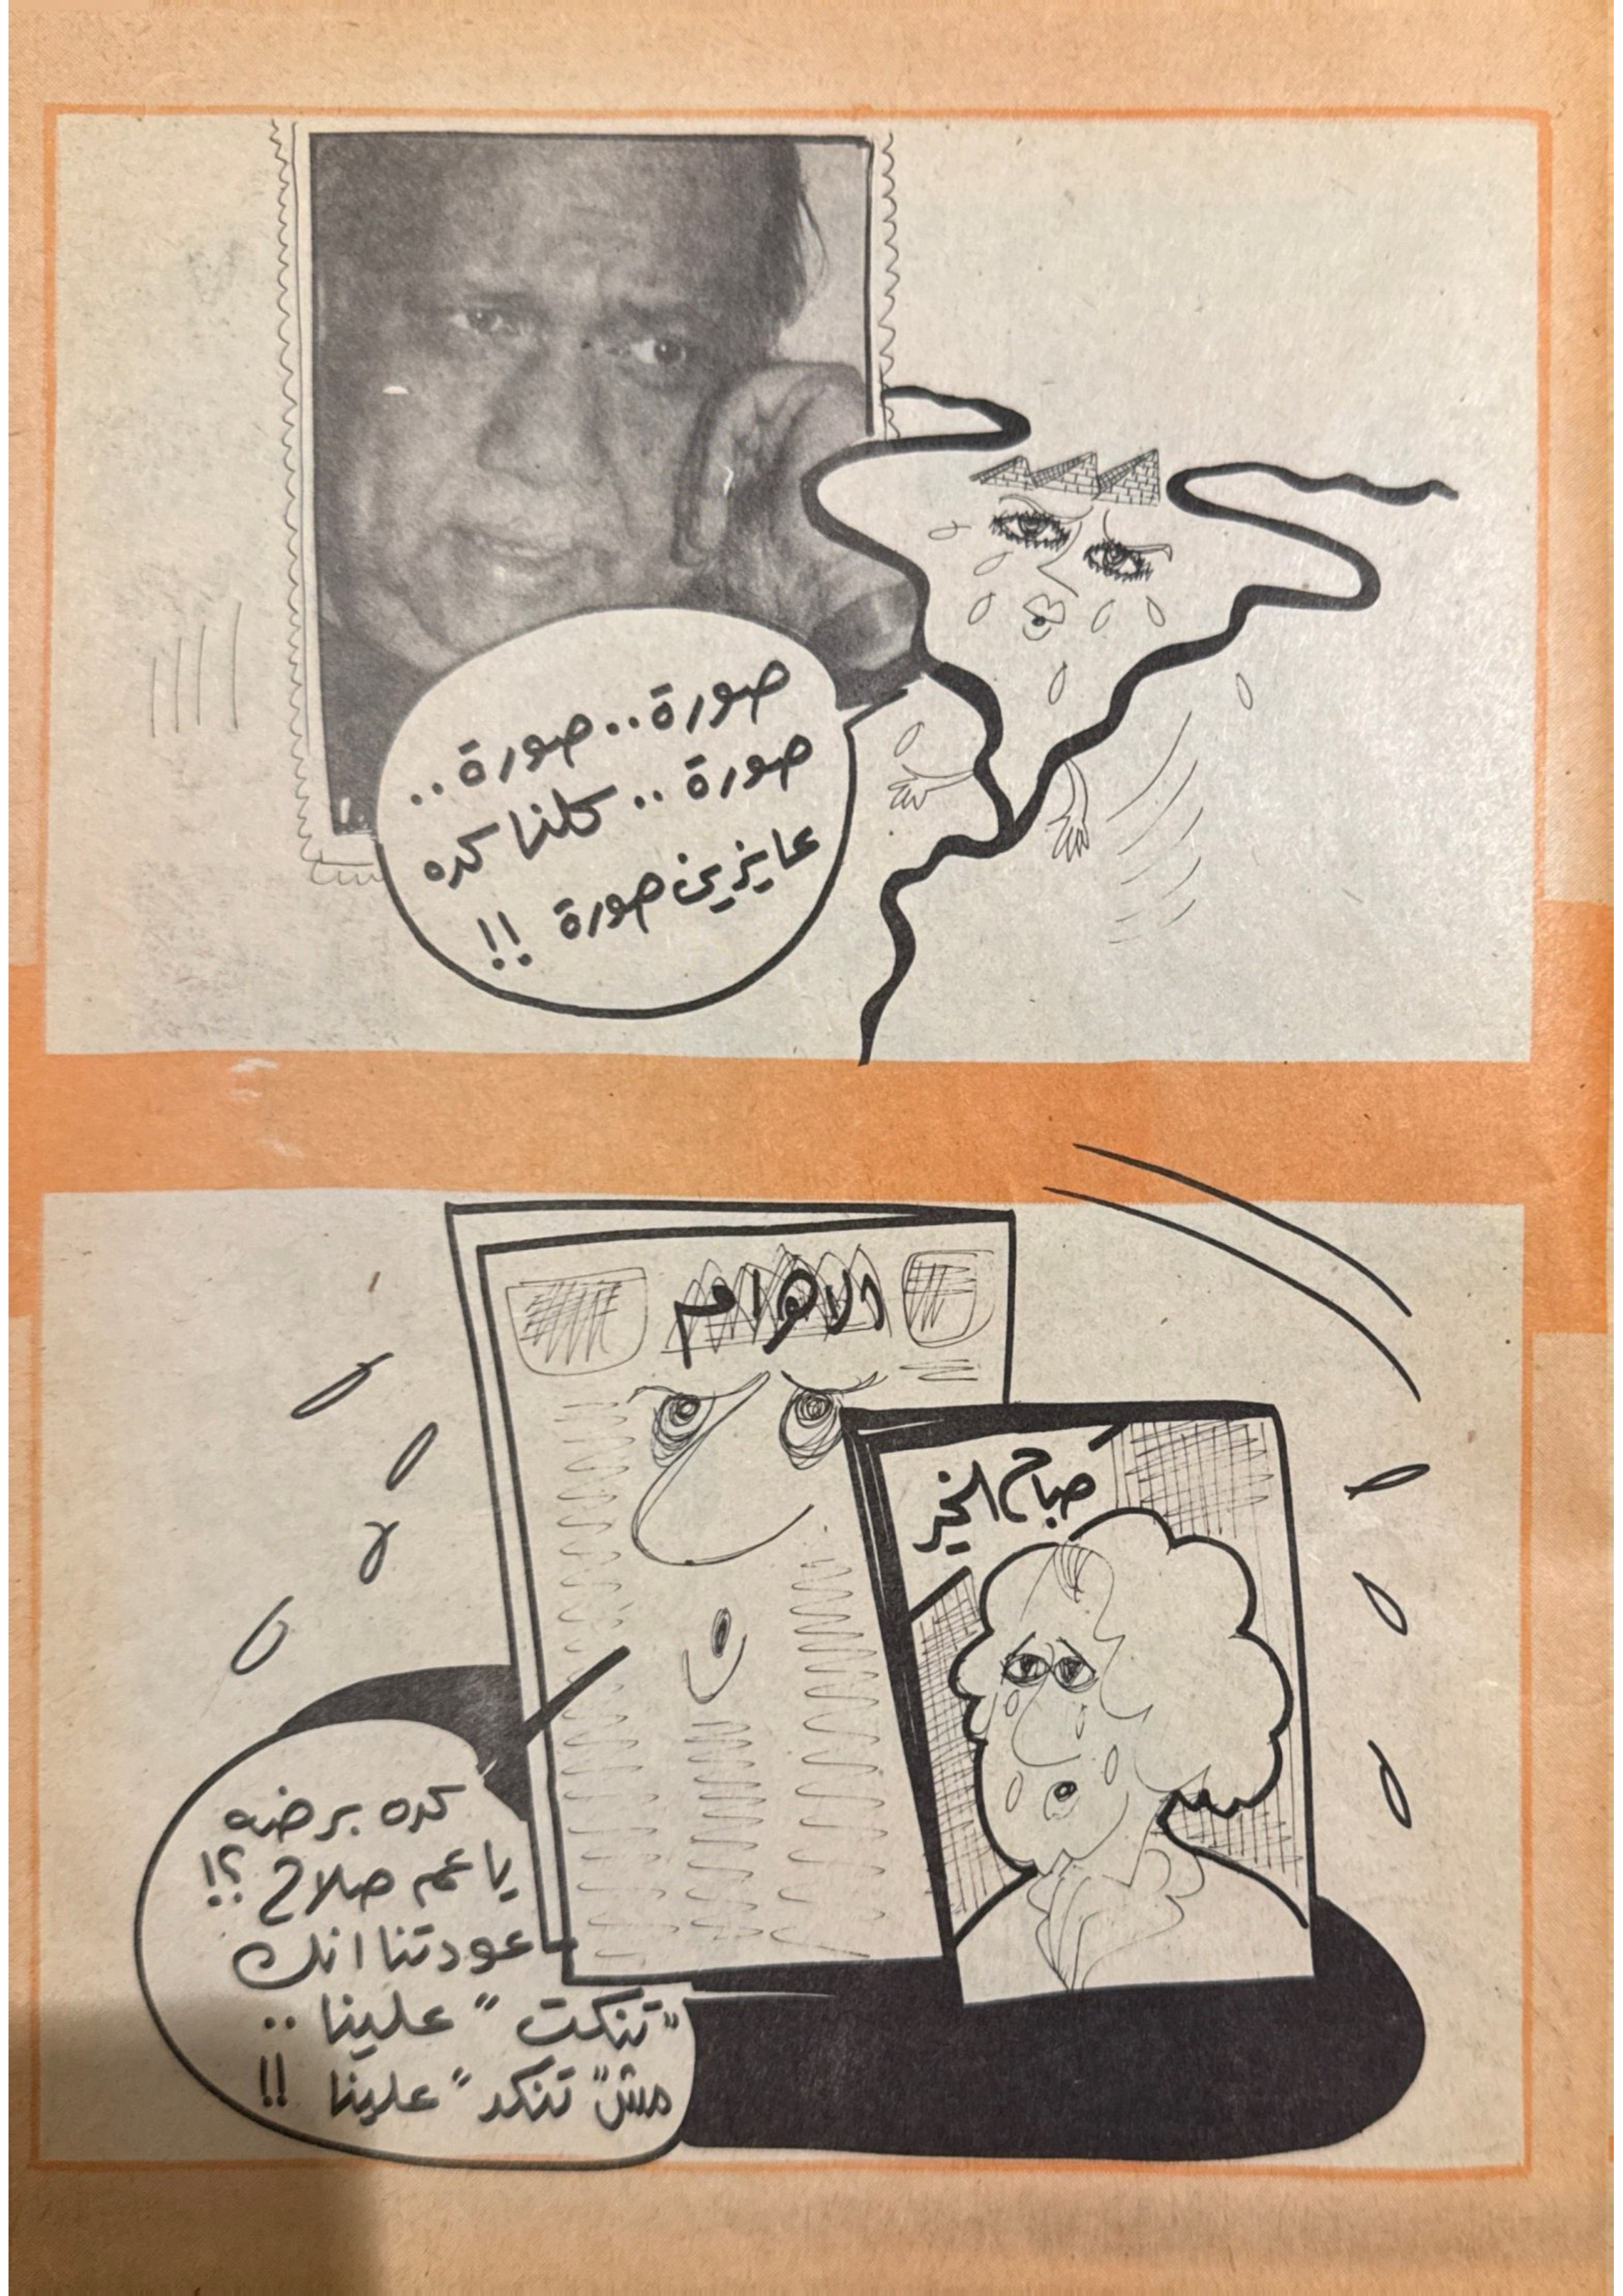 صورة..صورة..
صورة.. كلنا كده
عايزين صورة !!
الاهرام
صباح الخير
كده برضه
يا عم صلاح ؟!
عودتنا انك
"تنكت" علينا ..
مش "تنكد" علينا !!